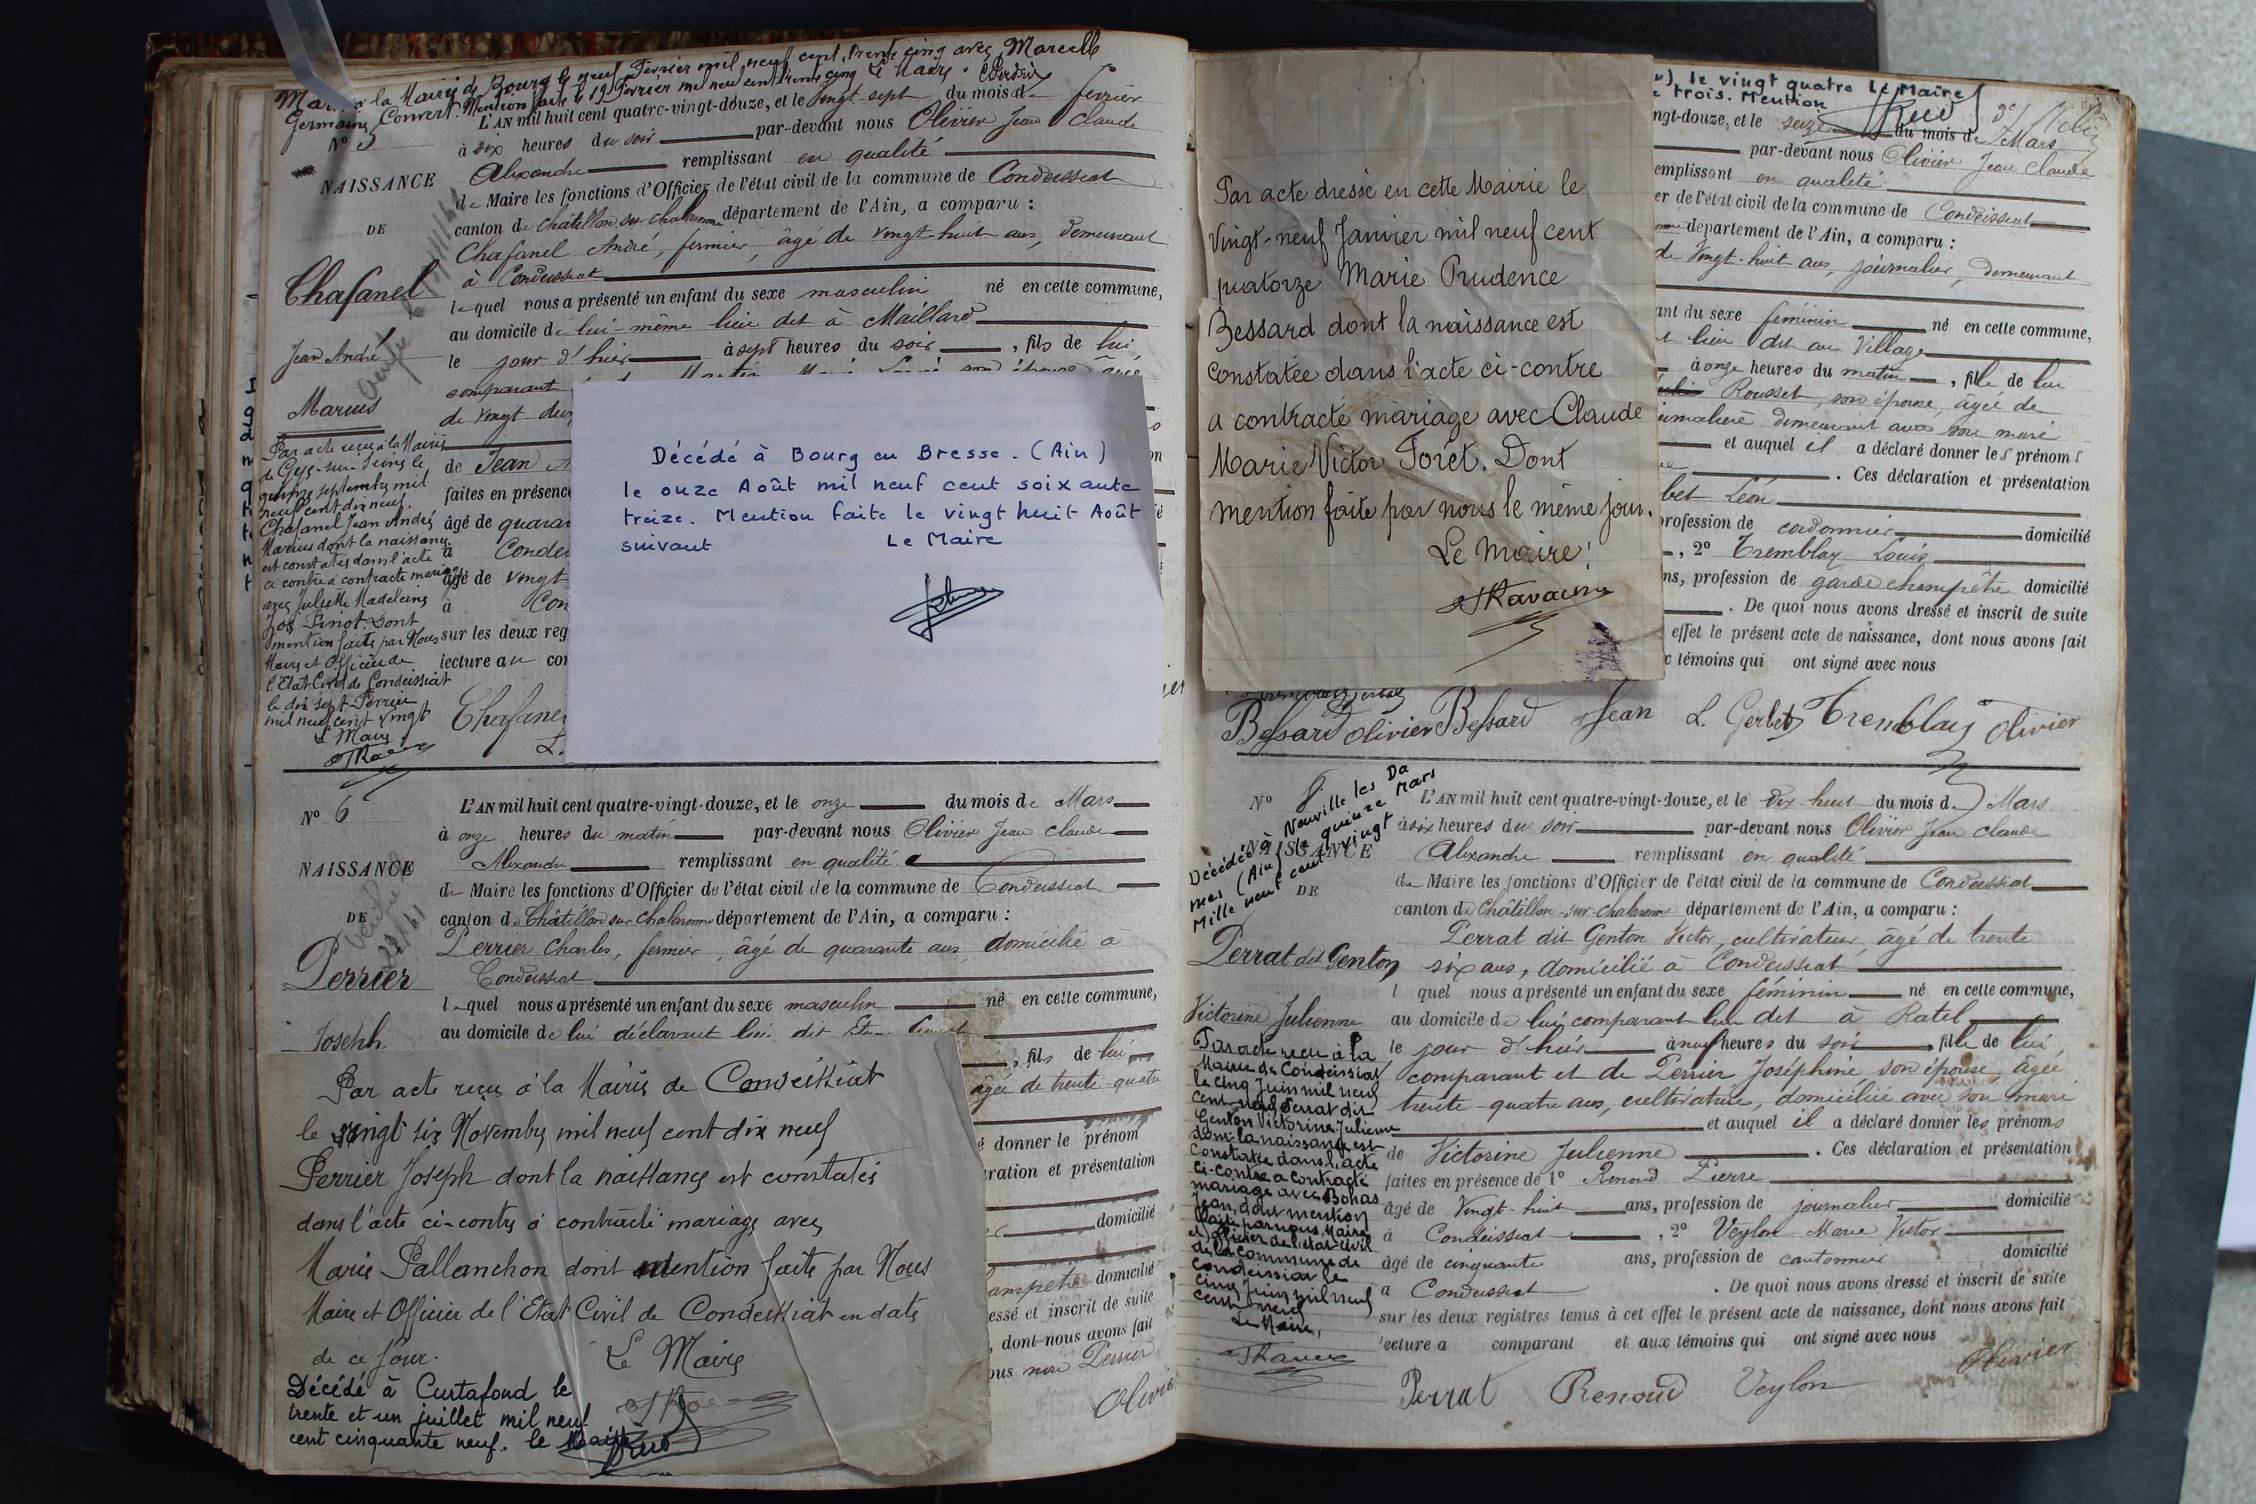 à la Mairie de Bourg le neuf Février mil neuf cent trente cinq avec Marcelle
Germaine Convert. Mention faite le 19 Février mil neuf cent trente cinq Le Maire.
L'AN mil huit cent quatre-vingt-douze, et le vingt-sept du mois de février
à six heures du soir par-devant nous Olivier Jean Claude
Alexandre remplissant en qualité
de Maire les fonctions d'Officier de l'état civil de la commune de Condeissiat
canton de Châtillon sur Chalaronne département de l'Ain, a comparu :
Chafanel André, fermier, âgé de vingt-huit ans, demeurant
à Condeissiat
lequel nous a présenté un enfant du sexe masculin né en cette commune,
au domicile de lui-même lieu dit à Maillard
le jour d'hier à sept heures du soir, fils de lui,
comparant
de vingt deux
de Jean
faites en présence
âgé de
à
âgé de vingt
à
sur les deux
lecture au
Chafanel
NAISSANCE
DE
Chafanel
Jean André
Marius
Par acte reçu à la Mairie
de Gyé-sur-Seine le
quinze septembre mil
neuf cent dix neuf.
Chafanel Jean André
Marius dont la naissance
est constatée dans l'acte
ci contre a contracté mariage
avec Juliette Madeleine
Pinot. Dont
mention faite par Nous
Maire et Officier de
l'Etat Civil de Condeissiat
le dix sept Février
mil neuf cent vingt
Le Maire
Décédé à Bourg en Bresse. (Ain)
le onze Août mil neuf cent soixante
treize. Mention faite le vingt huit Août
suivant Le Maire
N° 6
NAISSANCE
DE
Perrier
Joseph
L'AN mil huit cent quatre-vingt-douze, et le onze du mois de Mars
à onze heures du matin par-devant nous Olivier Jean Claude
Alexandre remplissant en qualité
de Maire les fonctions d'Officier de l'état civil de la commune de Condeissiat
canton de Châtillon sur Chalaronne département de l'Ain, a comparu :
Perrier Charles, fermier, âgé de quarante ans, domicilié à
Condeissiat
lequel nous a présenté un enfant du sexe masculin né en cette commune,
au domicile de lui déclarant lieu dit
, fils de lui
âgée de trente-quatre
donner le prénom
ration et présentation
domicilié
domicilié
essé et inscrit de suite
, dont nous avons fait
Perrier
Par acte reçu à la Mairie de Condeissiat
le vingt six Novembre mil neuf cent dix neuf
Perrier Joseph dont la naissance est constatée
dans l'acte ci-contre a contracté mariage avec
Marie Pallanchon dont mention faite par Nous
Maire et Officier de l'Etat Civil de Condeissiat en date
de ce jour. Le Maire
Décédé à Curtafond le
trente et un juillet mil neuf
cent cinquante neuf. le Maire
le vingt quatre Le Maire
trois. Mention
ngt-douze, et le seize du mois de Mars
par-devant nous Olivier Jean Claude
emplissant en qualité
er de l'état civil de la commune de Condeissiat
département de l'Ain, a comparu :
de vingt-huit ans, journalier, demeurant
ant du sexe féminin né en cette commune,
lieu dit au Village
à onze heures du matin, fille de lui
Rousset, son épouse, âgée de
demeurant avec son mari
et auquel il a déclaré donner les prénoms
. Ces déclaration et présentation
Léon
profession de cordonnier domicilié
, 2° Tremblay Louis
ns, profession de garde champêtre domicilié
. De quoi nous avons dressé et inscrit de suite
effet le présent acte de naissance, dont nous avons fait
témoins qui ont signé avec nous
Bessard Olivier Bessard Jean L. Gerbet Tremblay Olivier
Par acte dressé en cette Mairie le
Vingt-neuf Janvier mil neuf cent
quatorze Marie Prudence
Bessard dont la naissance est
Constatée dans l'acte ci-contre
a contracté mariage avec Claude
Marie Victor Forêt. Dont
mention faite par nous le même jour.
Le Maire!
N° 8
NAISSANCE
DE
Décédée à Neuville les Da
mes (Ain) le quinze Mars
Mille neuf cent vingt
Perrat dit Genton
Victorine Julienne
Par acte reçu à la
Mairie de Condeissiat
le cinq Juin mil neuf
cent neuf Perrat dit
Genton Victorine Julienne
dont la naissance est
constatée dans l'acte
ci-contre a contracté
mariage avec Bonas
Jean, dont mention
faite par nous, Maire
et officier de l'état civil
de la commune de
Condeissiat le
cinq Juin mil neuf
cent neuf
Le Maire,
L'AN mil huit cent quatre-vingt-douze, et le dix huit du mois de Mars
à six heures du soir par-devant nous Olivier Jean Claude
Alexandre remplissant en qualité
de Maire les fonctions d'Officier de l'état civil de la commune de Condeissiat
canton de Châtillon-sur-Chalaronne département de l'Ain, a comparu :
Perrat dit Genton Victor, cultivateur, âgé de trente
six ans, domicilié à Condeissiat
l quel nous a présenté un enfant du sexe féminin né en cette commune,
au domicile de lui comparant lieu dit à Ratel
le jour d'hier à neuf heures du soir, fille de lui,
comparant et de Perrier Joséphine son épouse, âgée
trente-quatre ans, cultivatrice, domiciliée avec son mari
et auquel il a déclaré donner les prénoms
de Victorine Julienne. Ces déclaration et présentation
faites en présence de 1° Renoud Pierre
âgé de vingt-huit ans, profession de journalier domicilié
à Condeissiat, 2° Veylon Marie Victor
âgé de cinquante ans, profession de cantonnier domicilié
à Condeissiat. De quoi nous avons dressé et inscrit de suite
sur les deux registres tenus à cet effet le présent acte de naissance, dont nous avons fait
lecture a comparant et aux témoins qui ont signé avec nous
Perrat Renoud Veylon Olivier